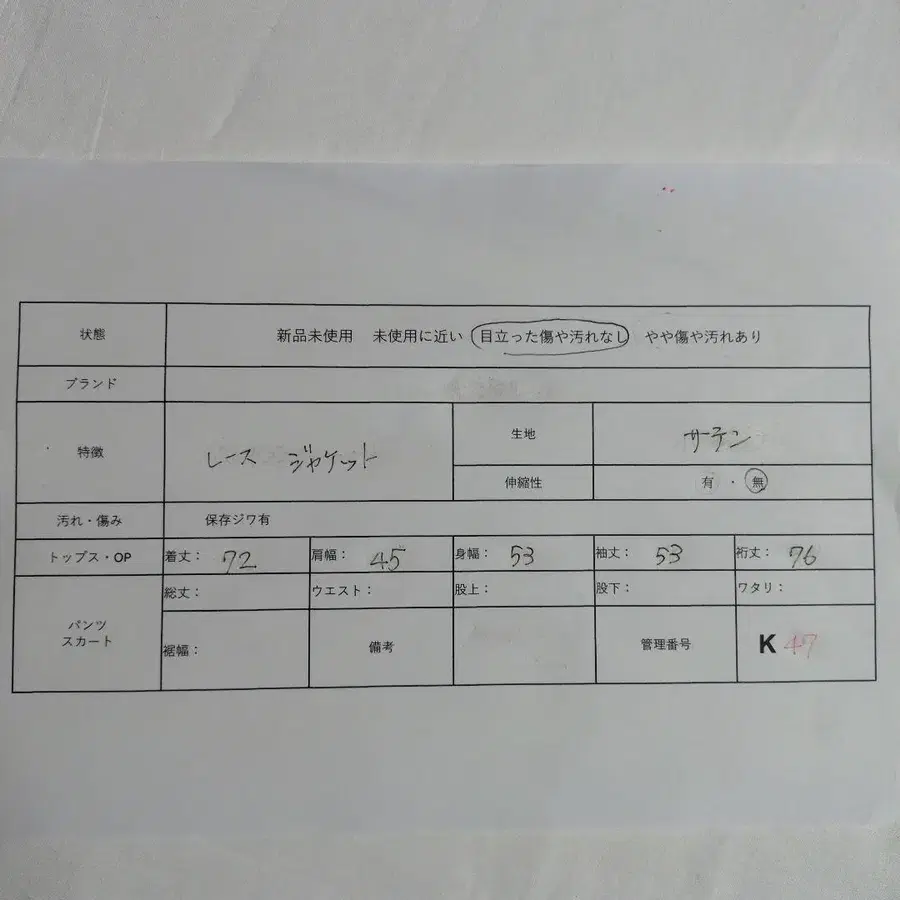 状態 新品未使用 未使用に近い 目立った傷や汚れなし やや傷や汚れあり
ブランド
特徴 レース ジャケット
生地 サテン
伸縮性 有 ・ 無
汚れ・傷み 保存ジワ有
トップス・OP 着丈: 72 肩幅: 45 身幅: 53 袖丈: 53 裄丈: 76
パンツ
スカート
総丈: ウエスト: 股上: 股下: ワタリ:
裾幅: 備考 管理番号 K 47